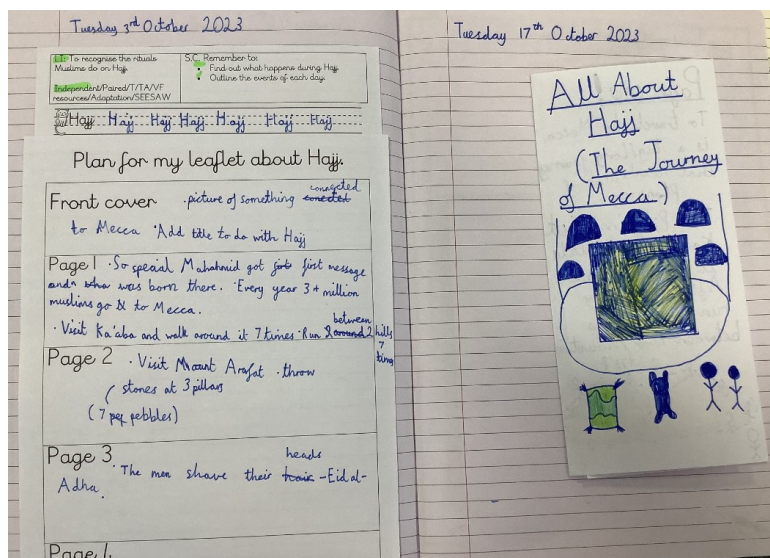 Tuesday 3rd October 2023
L.I: To recognise the rituals
Muslims do on Hajj.
S.C. Remember to:
Find out what happens during Hajj.
Outline the events of each day.
Independent/Paired/T/TA/VF
resources/Adaptation/SEESAW
Hajj Hajj Hajj Hajj Hajj Hajj Hajj
Plan for my leaflet about Hajj.
Front cover · picture of something conected connected
to Mecca · Add title to do with Hajj
Page 1 · So special Mahahmid got first message
and was born there. · Every year 3+ million
muslims go to Mecca.
· Visit Ka'aba and walk around it 7 times · Run around between 2 hills
7
times
Page 2 · Visit Mount Arafat · throw
stones at 3 pillars
(7 pebbles)
Page 3 · The men shave their hair heads - Eid al-
Adha.
Page 4
Tuesday 17th October 2023
All About
Hajj
(The Journey
of Mecca)